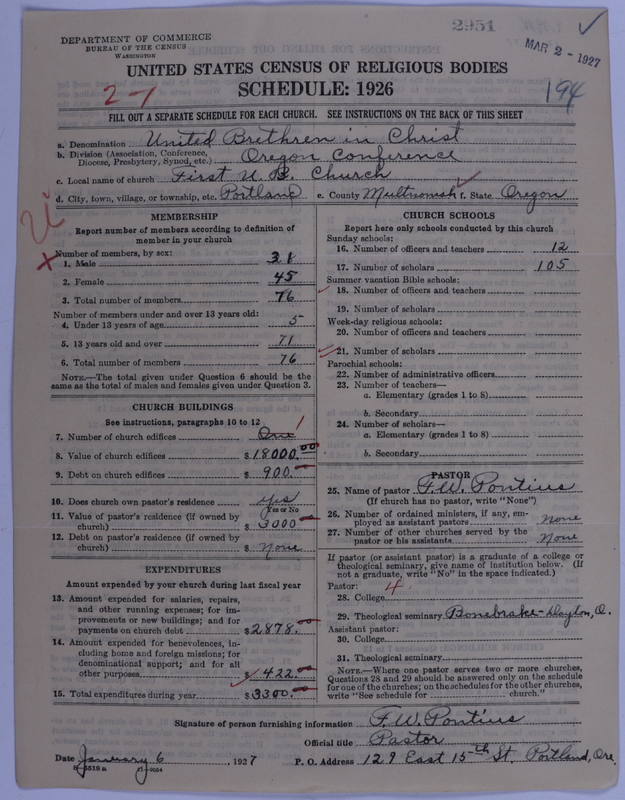 2951
DEPARTMENT OF COMMERCE
BUREAU OF THE CENSUS
WASHINGTON
MAR 2 - 1927
UNITED STATES CENSUS OF RELIGIOUS BODIES
SCHEDULE: 1926
2-1
194
FILL OUT A SEPARATE SCHEDULE FOR EACH CHURCH. SEE INSTRUCTIONS ON THE BACK OF THIS SHEET
a. Denomination United Brethren in Christ
b. Division (Association, Conference, Diocese, Presbytery, Synod, etc.) Oregon Conference
c. Local name of church First U. B. Church
d. City, town, village, or township, etc. Portland e. County Multnomah f. State Oregon
MEMBERSHIP
Report number of members according to definition of
member in your church
Number of members, by sex:
1. Male 31
2. Female 45
3. Total number of members 76
Number of members under and over 13 years old:
4. Under 13 years of age 5
5. 13 years old and over 71
6. Total number of members 76
NOTE.—The total given under Question 6 should be the
same as the total of males and females given under Question 3.
CHURCH BUILDINGS
See instructions, paragraphs 10 to 12
7. Number of church edifices One 1
8. Value of church edifices $18000.00
9. Debt on church edifices $900.
10. Does church own pastor's residence yes
Yes or No
11. Value of pastor's residence (if owned by
church) $3000
12. Debt on pastor's residence (if owned by
church) $ None
EXPENDITURES
Amount expended by your church during last fiscal year
13. Amount expended for salaries, repairs,
and other running expenses; for im-
provements or new buildings; and for
payments on church debt $2878.00
14. Amount expended for benevolences, in-
cluding home and foreign missions; for
denominational support; and for all
other purposes $422.00
15. Total expenditures during year $3300.00
CHURCH SCHOOLS
Report here only schools conducted by this church
Sunday schools:
16. Number of officers and teachers 12
17. Number of scholars 105
Summer vacation Bible schools:
18. Number of officers and teachers
19. Number of scholars
Week-day religious schools:
20. Number of officers and teachers
21. Number of scholars
Parochial schools:
22. Number of administrative officers
23. Number of teachers—
a. Elementary (grades 1 to 8)
b. Secondary
24. Number of scholars—
a. Elementary (grades 1 to 8)
b. Secondary
PASTOR
25. Name of pastor F. W. Pontius
(If church has no pastor, write "None")
26. Number of ordained ministers, if any, em-
ployed as assistant pastors None
27. Number of other churches served by the
pastor or his assistants None
If pastor (or assistant pastor) is a graduate of a college or
theological seminary, give name of institution below. (If
not a graduate, write "No" in the space indicated.)
Pastor: 4
28. College
29. Theological seminary Bonebrake-Dayton, O.
Assistant pastor:
30. College
31. Theological seminary
NOTE.—Where one pastor serves two or more churches,
Questions 28 and 29 should be answered only on the schedule
for one of the churches; on the schedules for the other churches,
write "See schedule for church."
Signature of person furnishing information F. W. Pontius
Official title Pastor
Date January 6, 1927 P. O. Address 129 East 15th St. Portland, Ore.